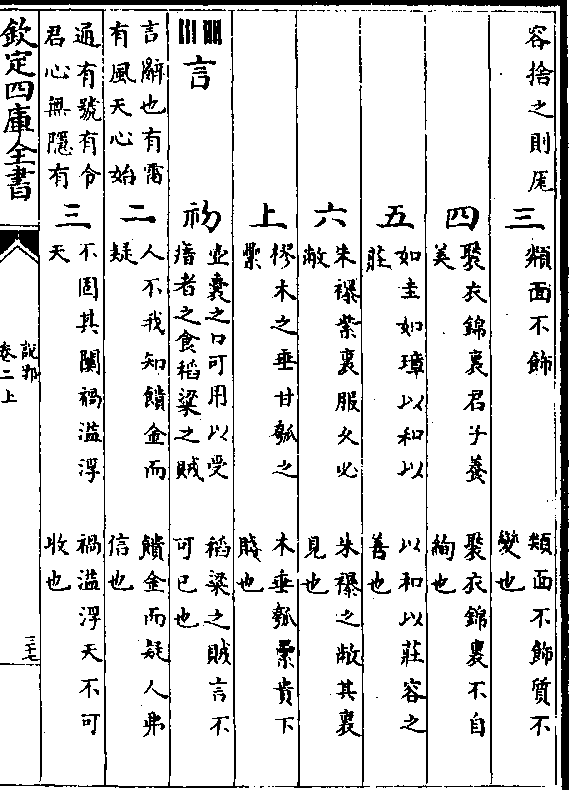 容捨之則
三
面不飾
面不飾質不
變也
四
褧衣錦裏君子養
美
褧衣錦裏不自
絢也
五
如圭如璋以和以
莊
以和以莊容之
善也
六
朱襮紫裏服久必
敝
朱襮之敝其裏
見也
上
樛木之垂甘瓠之
纍
木垂瓠纍貴下
賤也
言
初
壺囊之口可用以受
瘖者之食稻粱之賊
稻粱之賊言不
可已也
言辭也有雷
有風天心始
二
人不我知饋金而
疑
饋金而疑人弗
信也
通有號有令
君心無隱有
三
不固其闑禍溢浮
天
禍溢浮天不可
收也
欽定四庫全書
說郛
卷二上
三七